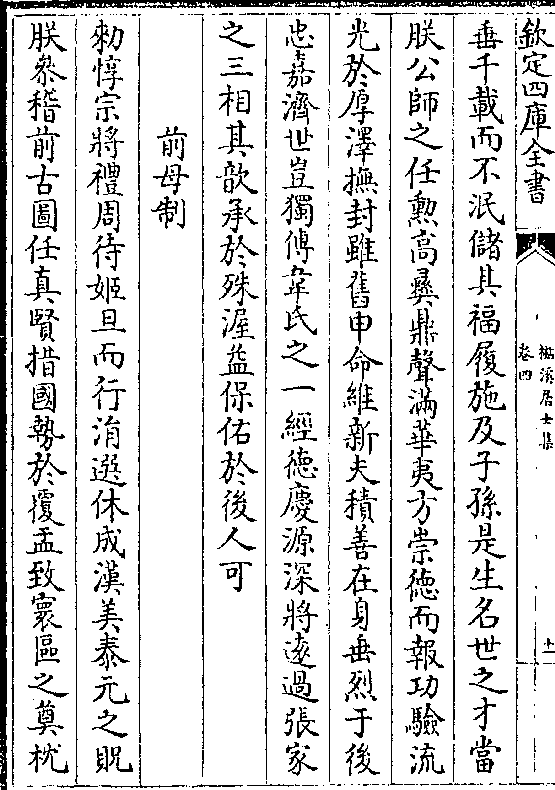 欽定四庫全書
檆溪居士集
卷四
十一
垂千載而不泯儲其福履施及子孫是生名世之才當
朕公師之任勲高彞鼎聲滿華夷方崇德而報功驗流
光於厚澤撫封雖舊申命維新夫積善在身垂烈于後
忠嘉濟世豈獨傅韋氏之一經德慶源深將遂過張家
之三相其歆承於殊渥益保佑於後人可
前母制
勑惇宗將禮周待姬旦而行涓選休成漢美泰元之貺
朕叅稽前古圖任真賢措國勢於覆盂致寰區之奠枕